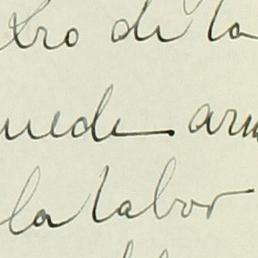 tro de la
uede arm
la labor